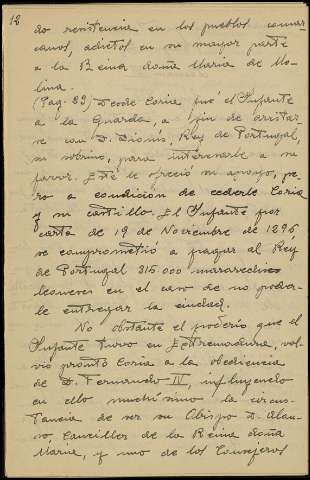 12
do resistencia en los pueblos comar-
canos, adictos en su mayor parte
a la Reina doña Maria de Mo-
lina.
(Pag. 89) Desde Coria fué el Infante
a la Guarda, a fin de avistar-
se con D. Dionís, Rey de Portugal,
su sobrino, para interesarle a su
favor. Este le ofreció su apoyo, pe-
ro a condición de cederle Coria
y su castillo. El Infante por
carta de 19 de Noviembre de 1296
se comprometió a pagar al Rey
de Portugal 315.000 maravedises
leoneses en el caso de no poder-
le entregar la ciudad.
No obstante el poderío que el
Infante tuvo en Extremadura, vol-
vió pronto Coria a la obediencia
de D. Fernando IV, influyendo
en ello muchísimo la circuns-
tancia de ser su Obispo D. Alon-
so, Canciller de la Reina doña
Maria, y uno de los Consejeros